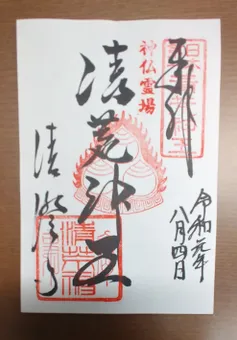 奉拝
神仏霊場
清荒神王
清澄寺
令和元年
八月四日